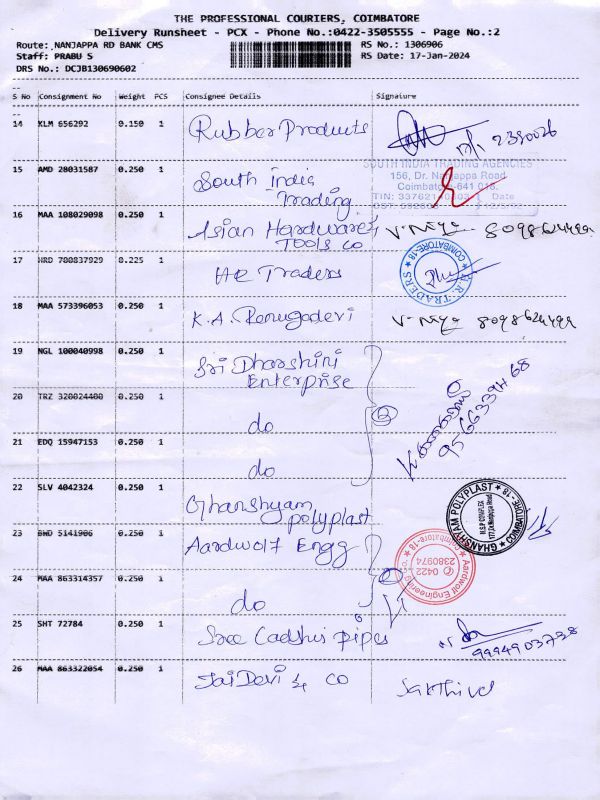 THE PROFESSIONAL COURIERS, COIMBATORE
Delivery Runsheet - PCX - Phone No.:0422-3505555 - Page No.:2
Route: NANJAPPA RD BANK CMS RS No.: 1306906
Staff: PRABU S RS Date: 17-Jan-2024
DRS No.: DCJB130690602
S No Consignment No Weight PCS Consignee Details Signature
14 KLM 656292 0.150 1 Rubber Products
15 AMD 28031587 0.250 1 South India
Trading
SOUTH INDIA TRADING AGENCIES
156, Dr. Nanjappa Road
Coimbatore-641 018.
16 MAA 108029098 0.250 1 Asian Hardware
TOOLS CO
17 HRD 700837929 0.225 1 HR Traders
R. TRADERS COIMBATORE-18
18 MAA 573396053 0.250 1 K.A. Renugadevi
19 NGL 100040998 0.250 1 Sri Dharshini
Enterprise
20 TRZ 320024400 0.250 1 do
3
21 EDQ 15947153 0.250 1 do
9566339468
22 SLV 4042324 0.250 1 Ghanshyam
polyplast
GHANSHYAM POLYPLAST COIMBATORE - 18
23 BWD 5141906 0.250 1 Aardwolf Engg
Aardwolf Engineering Coimbatore-18
0422
2380974
24 MAA 863314357 0.250 1 do
25 SHT 72784 0.250 1 Sree Ladhis pipes
9994903738
26 MAA 863322054 0.250 1 Jai Devi & CO Sakthivel